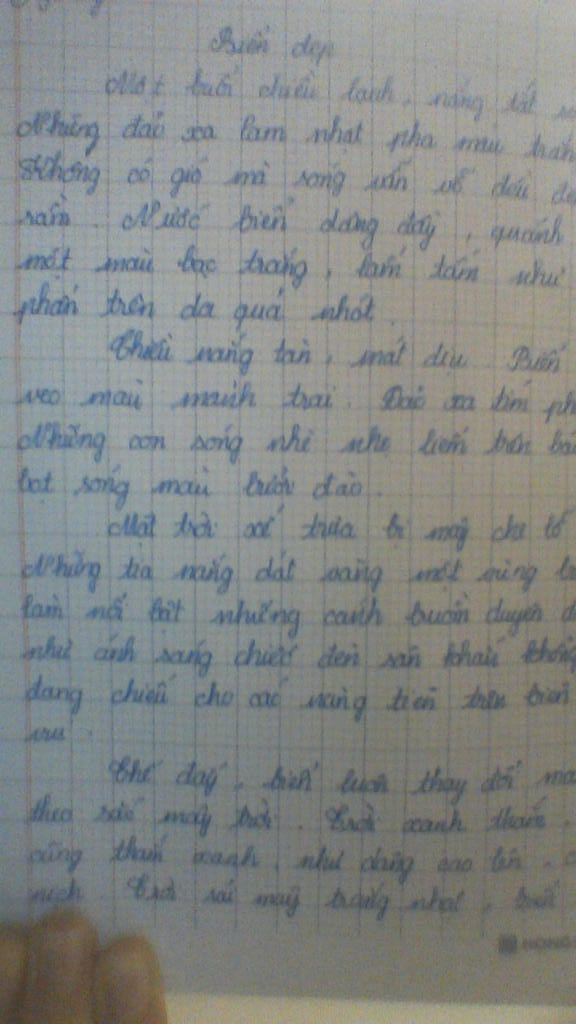 Biển đẹp
Một buổi chiều lạnh, nắng tắt
Những đảo xa lam nhạt pha màu
Không có gió mà sóng vẫn vỗ đều
rầm. Nước biển dâng đầy, quánh
một màu bạc trắng, lấm tấm như
phấn trên da quả nhót.
Chiều nắng tàn, mát dịu. Biển
veo màu mảnh trai. Đảo xa tím
Những con sóng nhè nhẹ liếm trên
bọt sóng màu bưởi đào.
Mặt trời xế trưa bị mây che
Những tia nắng dát vàng một vùng
làm nổi bật những cánh buồm duyên
như ánh sáng chiếc đèn sân khấu
đang chiếu cho các nàng tiên trên biển
vui.
Thế đấy, biển luôn thay đổi
theo sắc mây trời. Trời xanh thẳm,
cũng thẳm xanh, như dâng cao lên,
nịch. Trời rải mây trắng nhạt, biển
HONG